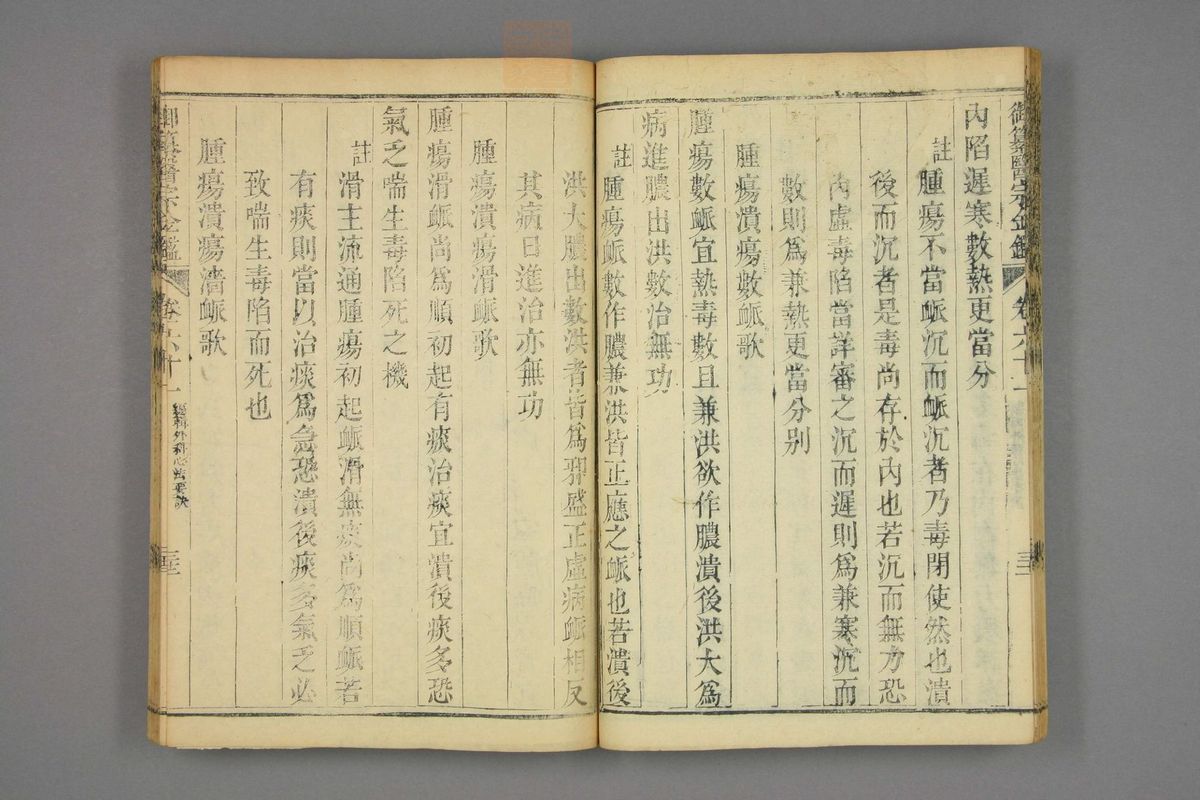 御篹醫宗金鑑 卷六十一
內陷遲寒數熱更當分
註腫瘍不當脈沉而脈沉者乃毒閉使然也潰
後而沉者是毒尚存於內也若沉而無力恐
內虛毒陷當詳審之沉而遲則爲兼寒沉而
數則爲兼熱更當分別
腫瘍潰瘍數脈歌
腫瘍數脈宜熱毒數且兼洪欲作膿潰後洪大爲
病進膿出洪數治無功
註腫瘍脈數作膿兼洪皆正應之脈也若潰後
洪大膿出數洪者皆爲邪盛正虛病脈相反
其病日進治亦無功
腫瘍潰瘍滑脈歌
腫瘍滑脈尚爲順初起有痰治痰宜潰後痰多恐
氣乏喘生毒陷死之機
註滑主流通腫瘍初起脈滑無痰尚爲順脈若
有痰則當以治痰爲急恐潰後痰多氣乏必
致喘生毒陷而死也
腫瘍潰瘍濇脈歌
御篹醫宗金鑑 卷六十一 編輯外科心法要訣